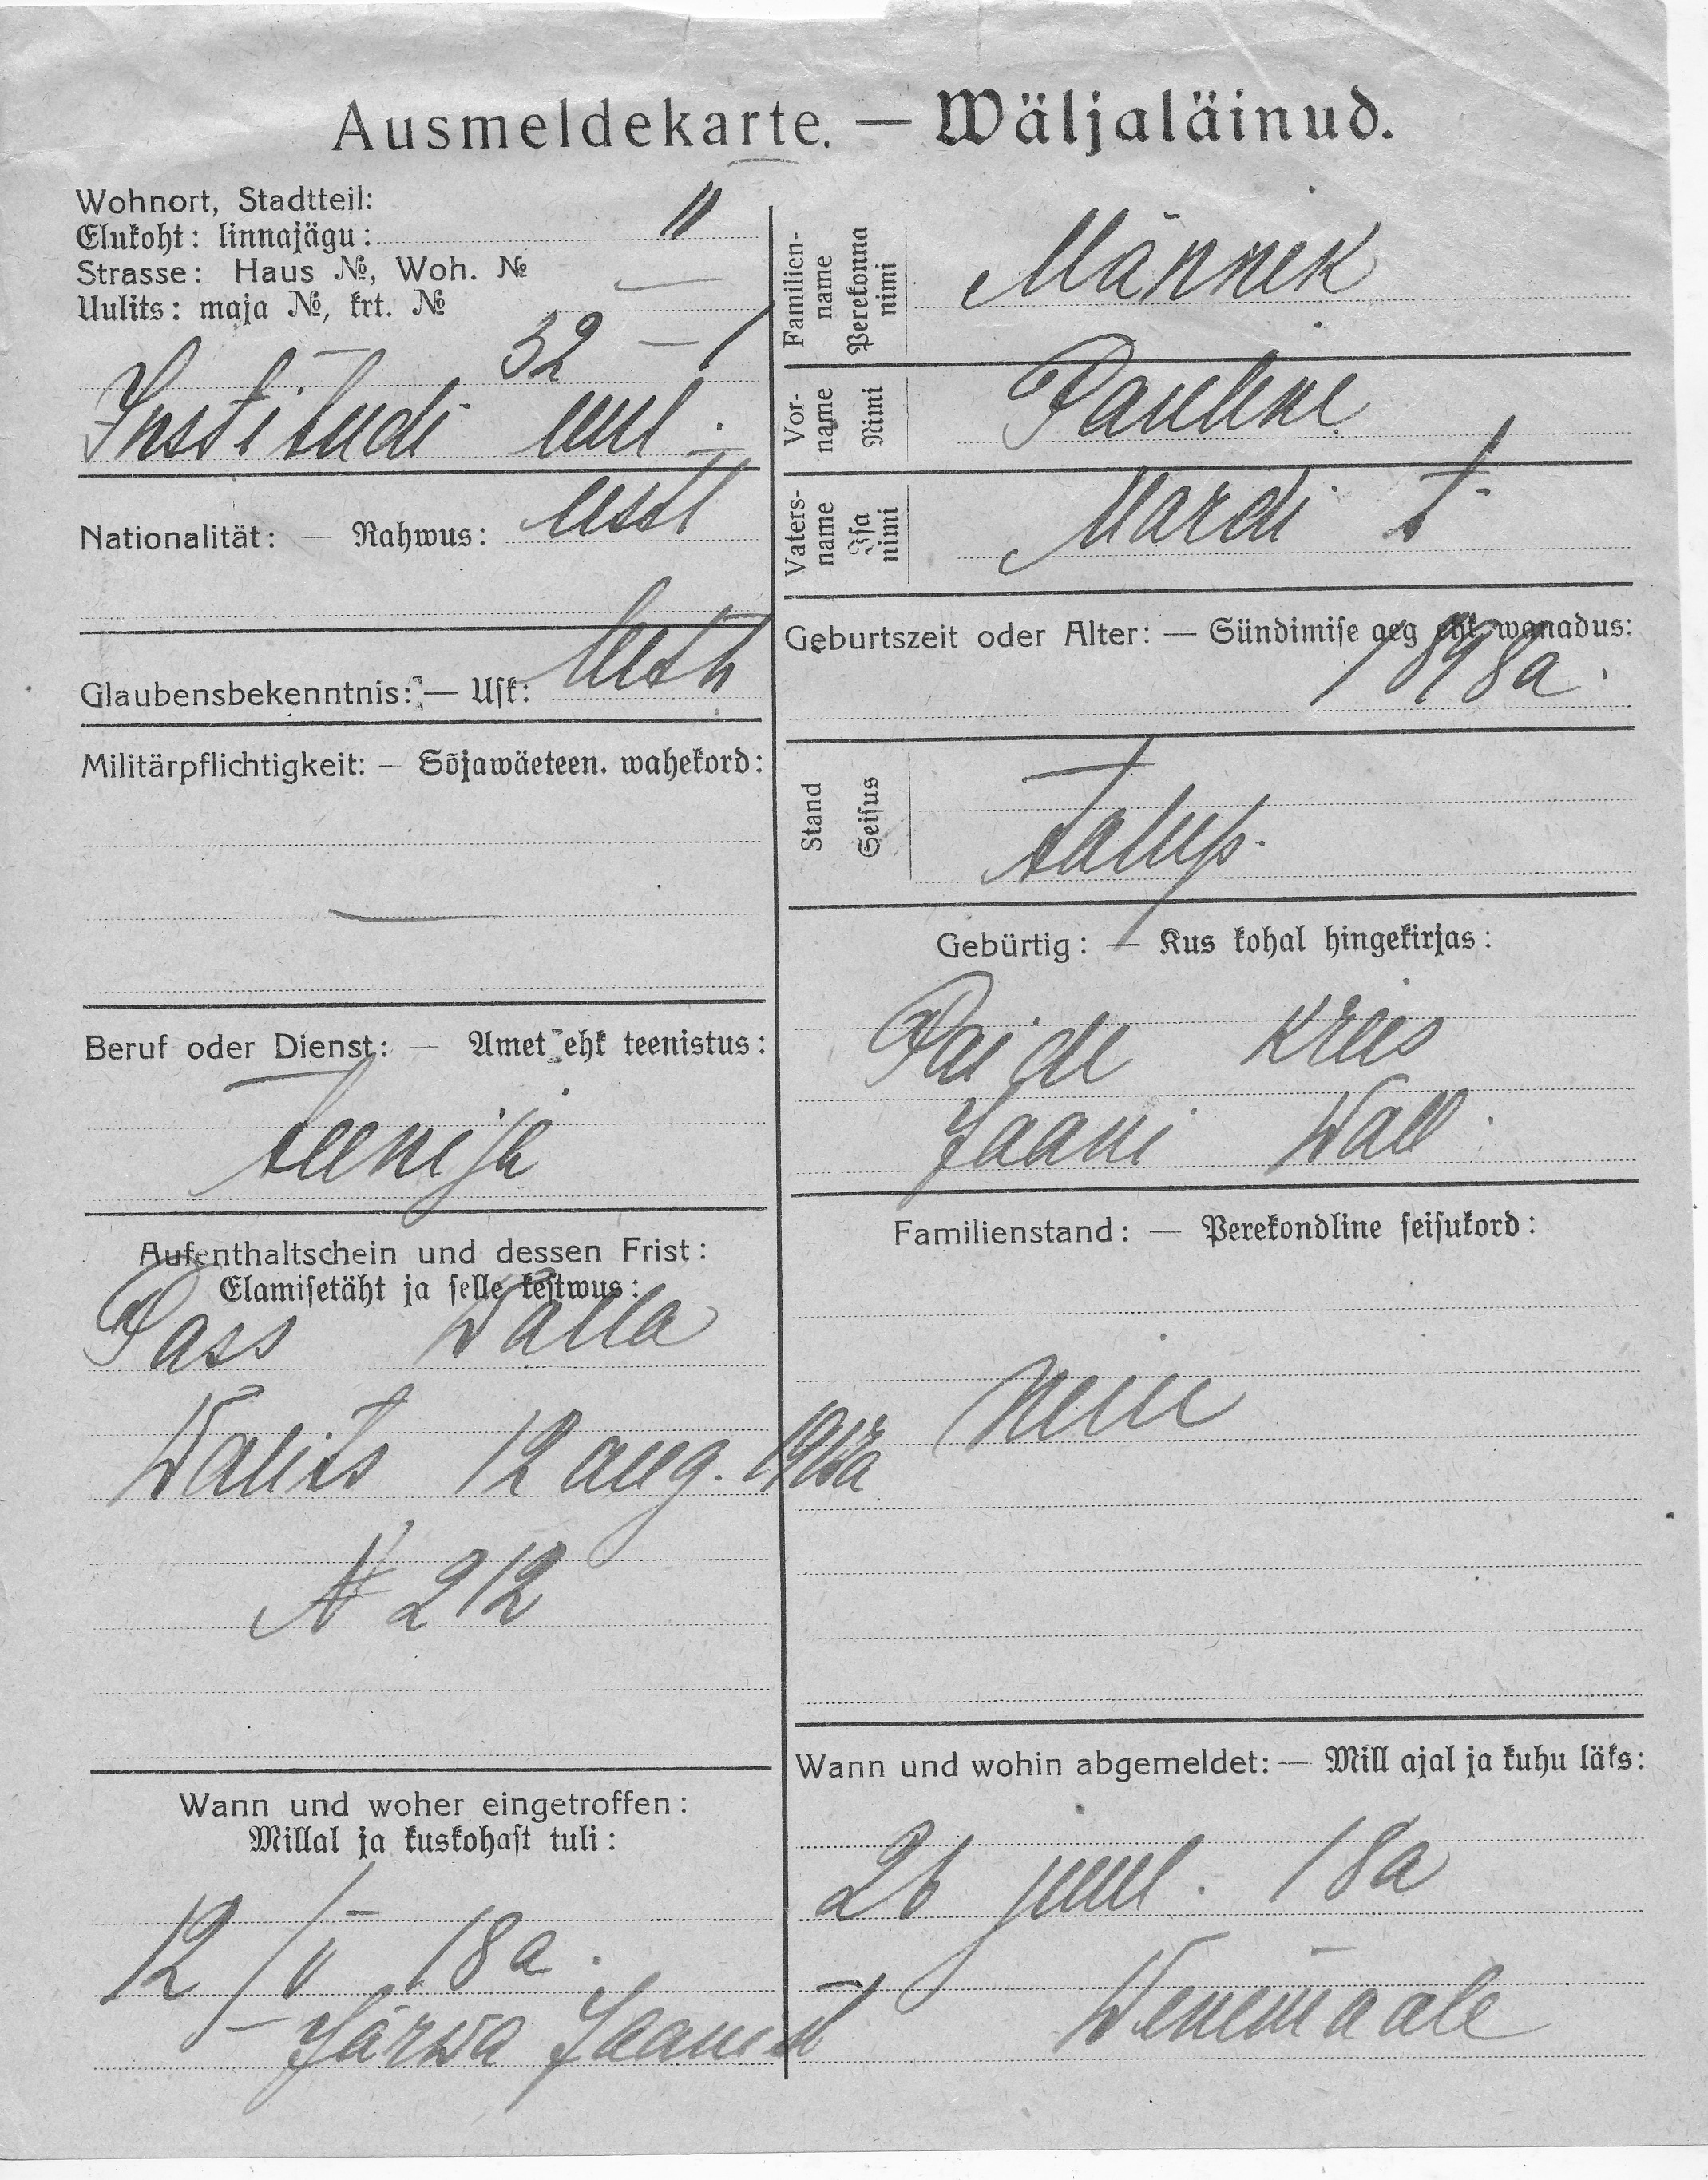 Ausmeldekarte. — Wäljaläinud.
Wohnort, Stadtteil:
Elukoht: linnajägu: II
Strasse: Haus №, Woh. №
Uulits: maja №, krt. №
32 – 1
Institudi uul.
Nationalität: — Rahwus: eestl
Glaubensbekenntnis: — Usk:
Militärpflichtigkeit: — Sõjawäeteen. wahekord:
—
Beruf oder Dienst: — Amet ehk teenistus:
teenija
Aufenthaltschein und dessen Frist:
Elamisetäht ja selle kestwus:
Pass Walla
Walits 12 aug.
N 212
Wann und woher eingetroffen:
Millal ja kuskohast tuli:
12/V 18a.
Järwa Jaanist
Familien-
name
Perekonna
nimi
Männik
Vor-
name
Nimi
Pauline
Vaters-
name
Isa
nimi
Mardi t.
Geburtszeit oder Alter: — Sündimise aeg ehk wanadus:
1898a.
Stand
Seisus
talup.
Gebürtig: — Kus kohal hingekirjas:
Paide Kreis
Jaani Wall.
Familienstand: — Perekondline seisukord:
Wann und wohin abgemeldet: — Mill ajal ja kuhu läks:
26 juul. 18a
Wenemaale